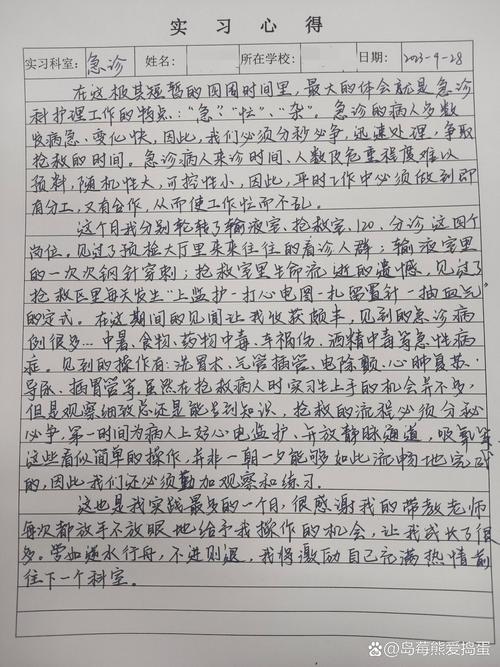 实习心得
实习科室: 急诊 姓名: 所在学校: 日期: 2023-9-28
在这极其短暂的四周时间里，最大的体会就是急诊
科护理工作的特点："急"、"忙"、"杂"。急诊的病人多数
发病急、变化快，因此，我们必须分秒必争，迅速处理，争取
抢救的时间。急诊病人来诊时间、人数及危重程度难以
预料，随机性大，可控性小，因此，平时工作中必须做到即
有分工，又有合作，从而使工作忙而不乱。
这个月我分别轮转了输液室、抢救室、120、分诊这四个
岗位。见过了预检大厅里来来往往的看诊人群；输液室里
的一次次钢针穿刺；抢救室里生命流逝的遗憾，见过了
抢救区里每天发生"上监护-打心电图-扎留置针-抽血气"
的定式。在这期间的见闻让我收获颇丰，见到的急诊病
例很多…中暑、食物、药物中毒、车祸伤、酒精中毒等急性病
症。见到的操作有：洗胃术、气管插管、电除颤、心肺复苏、
导尿、插胃管等，虽然在抢救病人时实习生上手的机会并不多，
但是观察细致总还是能学到知识，抢救的流程必须分秒
必争，第一时间为病人上好心电监护、开放静脉通道，吸氧等
这些看似简单的操作，并非一朝一夕能够如此流畅地完成
的，因此我们还必须勤加观察和练习。
这也是我实践最多的一个月，很感谢我的带教老师
每次都放手不放眼地给予我操作的机会，让我成长了很
多。学如逆水行舟，不进则退，我将激励自己充满热情前
往下一个科室。
Baidu百科 @岛莓熊爱捣蛋